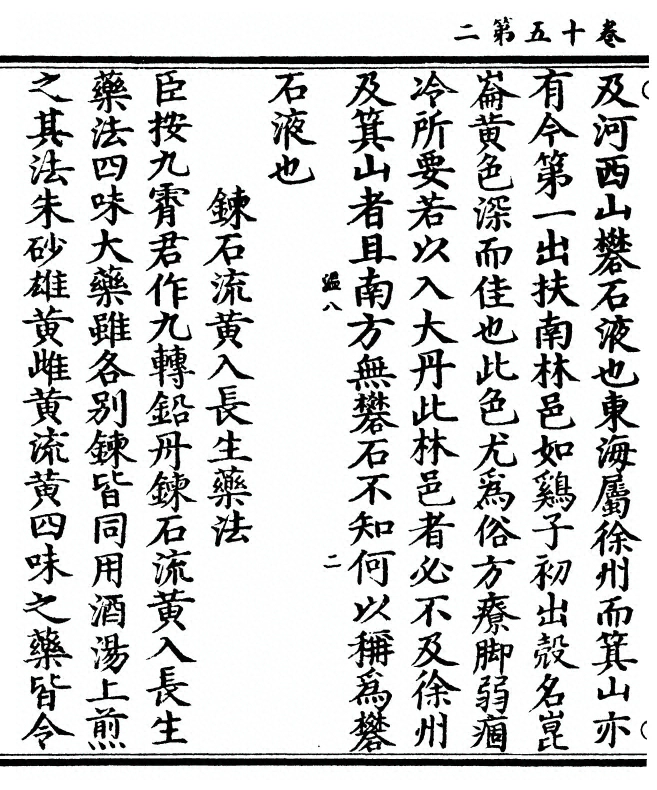 卷十五第二
及河西山礬石液也東海屬徐州而箕山亦
有今第一出扶南林邑如鷄子初出殼名崑
崙黄色深而佳也此色尤爲俗方療脚弱痼
冷所要若以入大丹此林邑者必不及徐州
及箕山者且南方無礬石不知何以稱爲礬
温八
二
石液也
鍊石流黄入長生藥法
臣按九霄君作九轉鉛丹鍊石流黄入長生
藥法四味大藥雖各别鍊皆同用酒湯上煎
之其法朱砂雄黄雌黄流黄四味之藥皆令